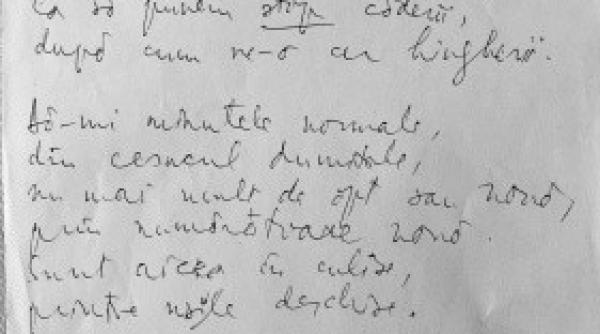 ca să punem stop căderii,
după cum ne-o cer hingherii.
Dă-mi minutele normale,
din ceasul dumitale,
nu mai mult de opt sau nouă,
prin numărătoare nouă.
Sunt aicea în culise,
printre ușile deschise.